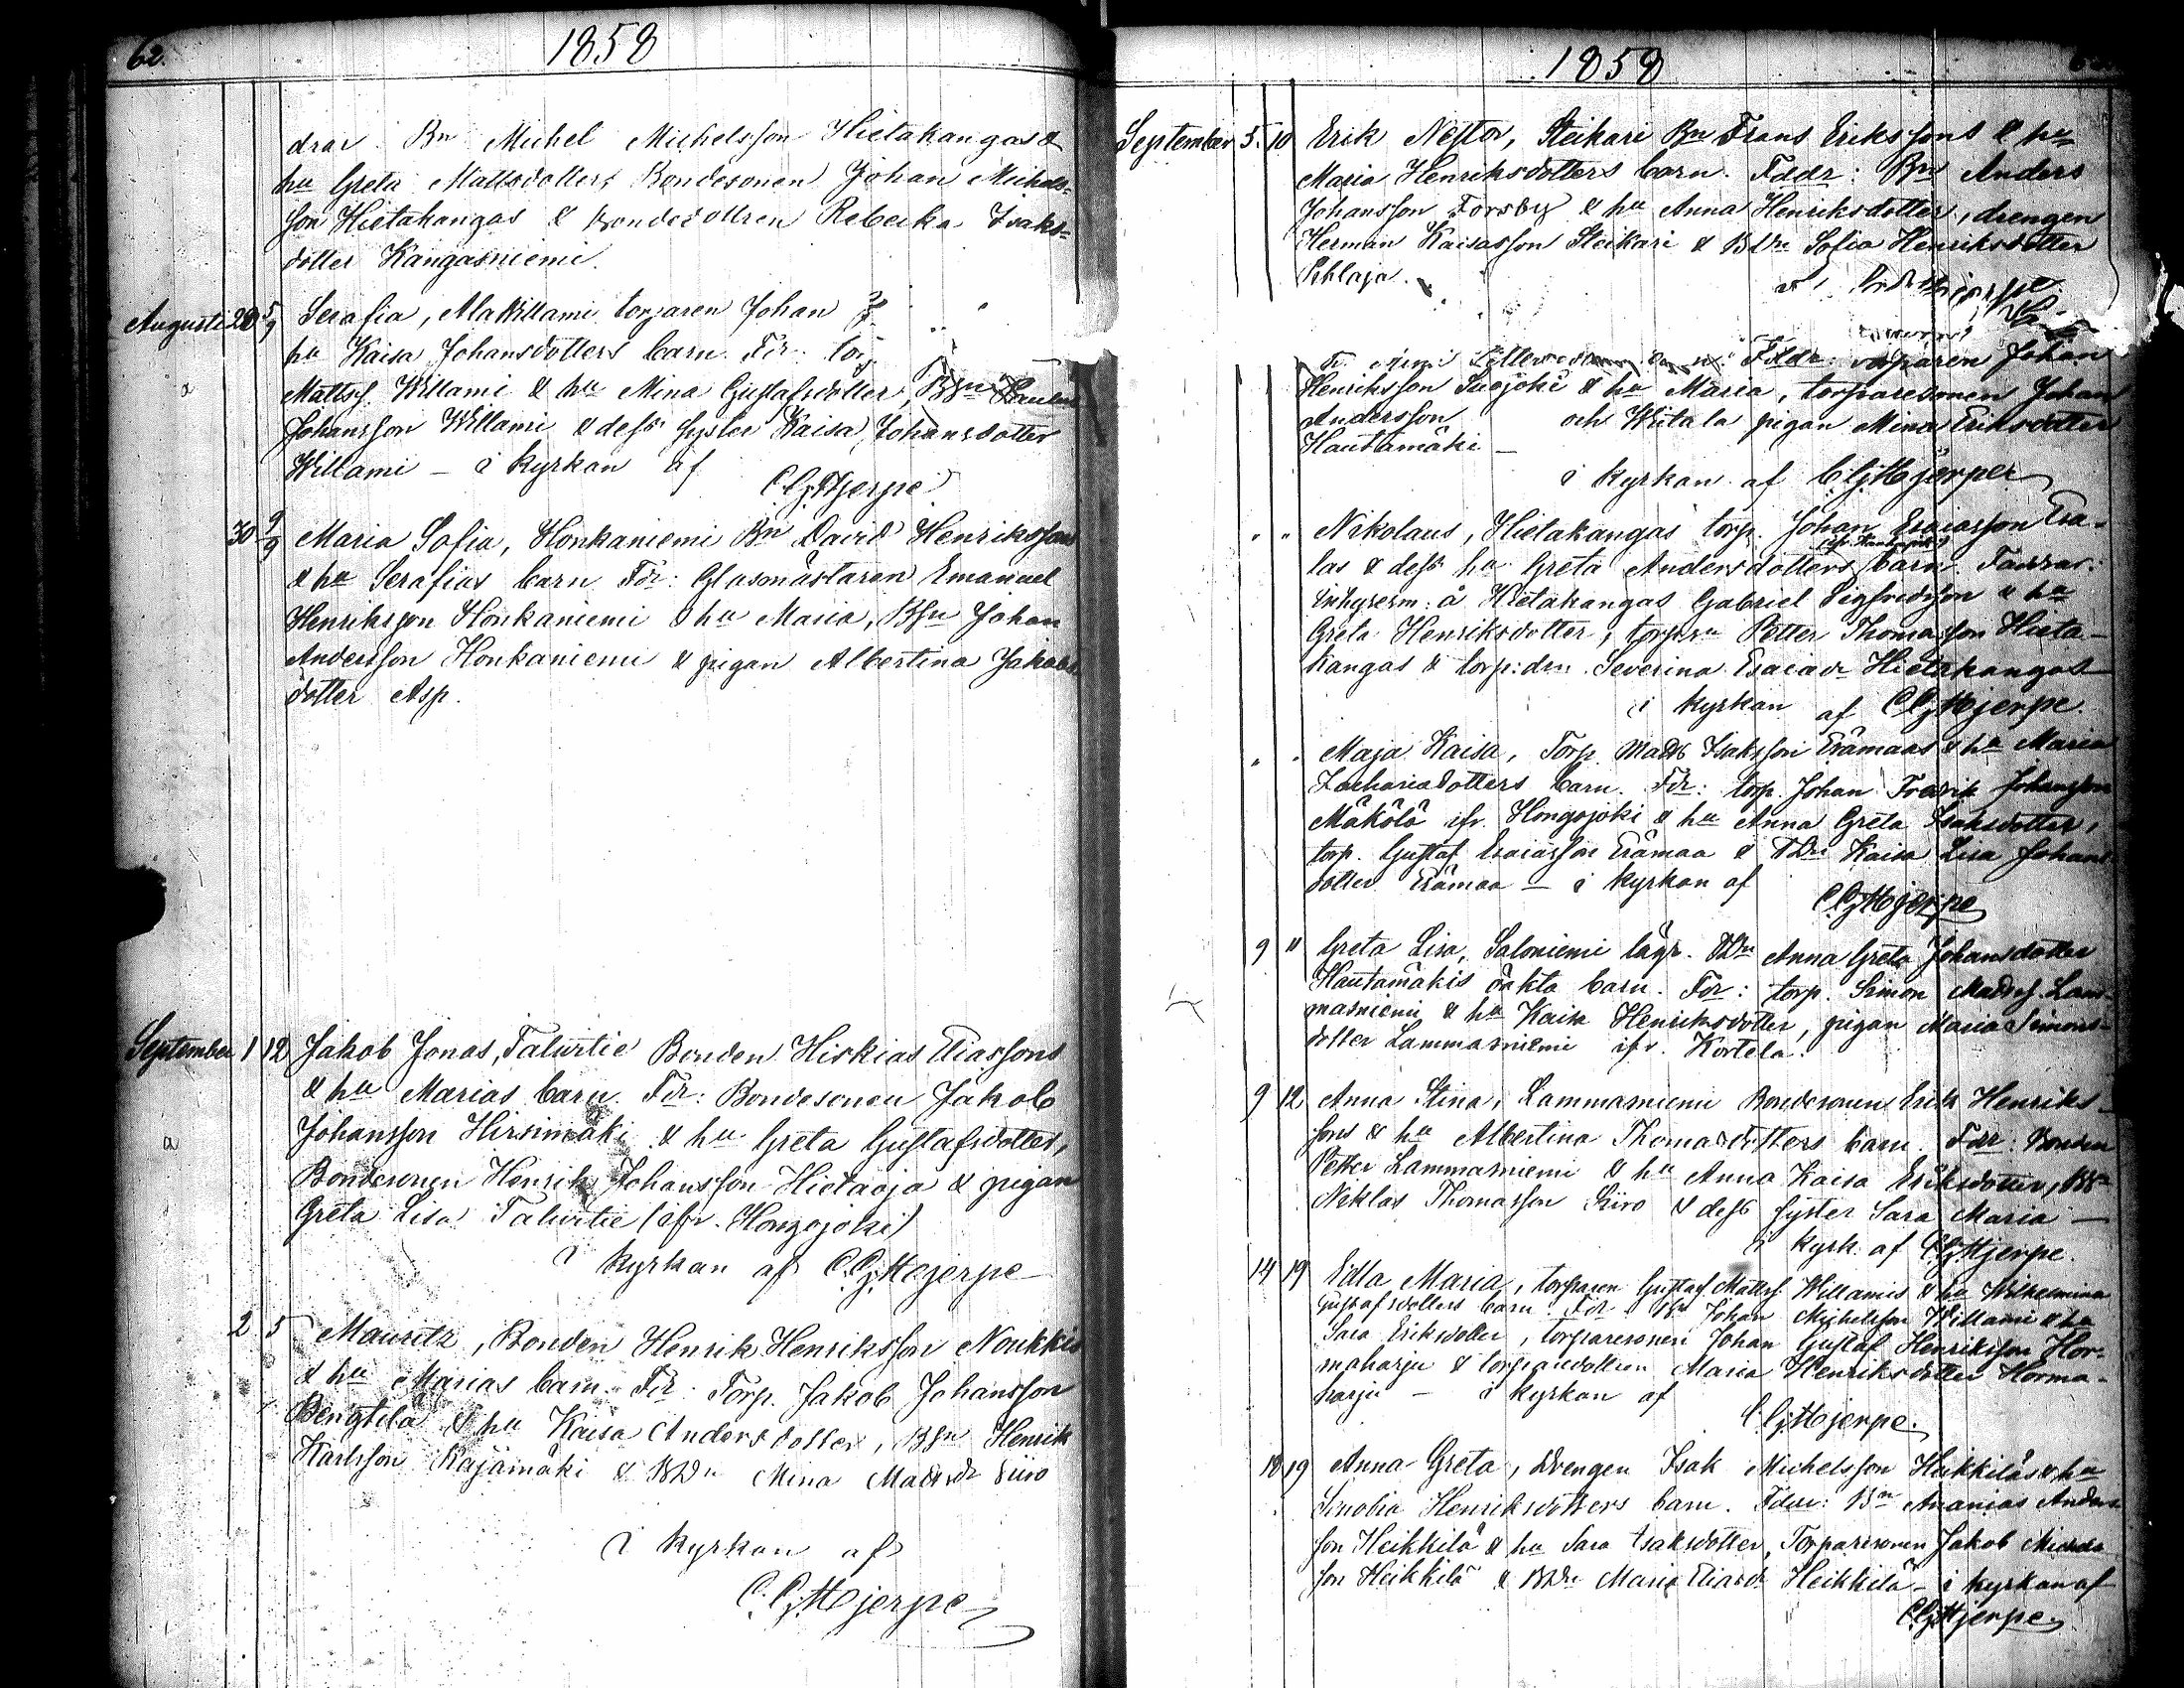 62.
1858
drar Bn Michel Michelsson Hietakangas &
hu Greta Mattsdotter, Bondesonen Johan Michels-
son Hietakangas & bondedottren Rebecka Isaks-
dotter Kangasniemi.
Augusti 5/9 Serafia, Willami torparen Johan
hu Kaisa Johansdotters barn. Fdr:
Mattss. Willami & hu Mina Gustafsdotter, BSn
Johansson Willami & dess syster Kaisa Johansdotter
Willami – i kyrkan af
C.G. Hjerpe
30 9/9 Maria Sofia, Honkaniemi Bn David Henriksson
& hu Serafias barn Fdr: Glasmästaren Emanuel
Henriksson Honkaniemi & hu Maria, BSn Johan
Andersson Honkaniemi & pigan Albertina Jakobs
dotter Asp.
September 1 12 Jakob Jonas, Talvitie Bonden Hiskias Eliassons
a
& hu Marias barn. Fdr: Bondesonen Jakob
Johansson Hirsimäki & hu Greta Gustafsdotter,
Bondesonen Henrik Johansson Hietaoja & pigan
Greta Lisa Talvitie (ifr. Hongojoki)
i kyrkan af C.G. Hjerpe
2 5 Mauritz, Bonden Henrik Henriksson Noukkis
& hu Marias barn. Fdr: Torp. Jakob Johansson
Bengtilä & hu Kaisa Andersdotter, BSn Henrik
Karlsson Kajamäki & BDn Mina Siiro
i kyrkan af
C.G. Hjerpe
1858
September 5. 10 Erik Nestor, Steikari Bn Frans Erikssons & hu
Maria Henriksdotters barn. Fddr: Bn Anders
Johansson Forsby & hu Anna Henriksdotter, drengen
Herman Kaisasson Steikari & BDn Sofia Henriksdotter
Pihlaja.
Fddr: torparen Johan
Henriksson Suojoki & hu Maria, torparesonen Johan
Andersson och Wiitala pigan Mina Eriksdotter
Hautamäki –
i kyrkan af C.G. Hjerpe
" " Nikolaus, Hietakangas torp. Johan Esaiasson Esa-
las & dess hu Greta Andersdotters barn. Faddrar:
inhysesm: å Hietakangas Gabriel Sigfridsson & hu
Greta Henriksdotter, Petter Thomasson Hieta-
kangas & torp:drn Severina Esaiadr Hietakangas
i kyrkan af C.G. Hjerpe.
" " Maja Kaisa, Torp. Matts Isaksson Erämaas & hu Maria
Zachariasdotters barn. Fdr: torp. Johan Fredrik Johansson
Mäkölä ifr. Hongojoki & hu Anna Greta Isaksdotter,
torp. Gustaf Esaiasson Erämaa & TDn Kaisa Lisa Johans
dotter Erämaa – i kyrkan af
C.G. Hjerpe
9 11 Greta Lisa, Saloniemi lägr. TDn Anna Greta Johansdotter
Hautamäkis oäkta barn. Fdr: torp. Simon Mattss. Lam-
masniemi & hu Kaisa Henriksdotter, pigan Maria Simons-
dotter Lammasniemi ifr. Kortela.
9 12 Anna Stina, Lammasniemi Bondesonen Erik Henriks-
sons & hu Albertina Thomasdotters barn. Fdr: Bonden
Petter Lammasniemi & hu Anna Kaisa Eriksdotter,
Niklas Thomasson Siiro & dess syster Sara Maria –
i kyrk. af C.G. Hjerpe.
14 19 Edla Maria, torparen Gustaf Mattss. Willamis & hu Wilhelmina
Gustafsdotters barn. Fdr Johan Michelsson Willami & hu
Sara Eriksdotter, torparesonen Johan Gustaf Henriksson Hor-
maharju & torparedottren Maria Henriksdotter Horma-
harju – i kyrkan af
C.G. Hjerpe.
18 19 Anna Greta, Drengen Isak Michelsson Heikkiläs & hu
Sinobia Henriksdotters barn. Fddr: Bn Ananias Anders
son Heikkilä & hu Sara Isaksdotter, Torparesonen Jakob
son Heikkilä & BDn Maria Eliasdr Heikkilä – i kyrkan af
C.G. Hjerpe